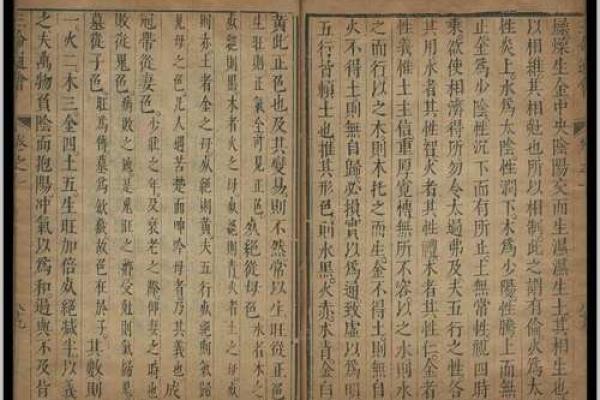 燥燥生金中央陰陽交而生濕濕生土其相生也
以相維其相尅也所以相制此之謂有倫火為太
性炎上水為太陰性潤下木為少陽性騰上而無
止金為少陰性沉下而有所止土無常性視四時
乘欲使相濟得所勿令太過弗及夫五行之性各
其用水者其性智火者其性禮木者其性仁金者
性義惟土主信重厚寬博無所不容以之水則水
之而行以之木則木托之而生金不得土則無自
火不得土則無自歸必損實以為通致虛以為明
五行皆賴土也推其形色則水黑火赤木青金白
黃此正色也及其變易則不然常以生旺從正色
生旺則正氣全可見正色死絕從母色
絕則黑木者火之母死絕則青火者土之母死
則赤土者金之母死絕則黃夫五行死絕則氣歸
見母之色人遇苦楚而呻吟母者乃其義也成
冠帶從妻色少壯之年及衰老之際仰妻之時也病
敗從鬼色病敗之地是鬼旺之鄉受尅則氣歸
墓從子色
一火二木三金四土五生旺加倍死絕減半以義
之夫萬物負陰而抱陽冲氣以為和過與不及皆
三命通會
卷之一